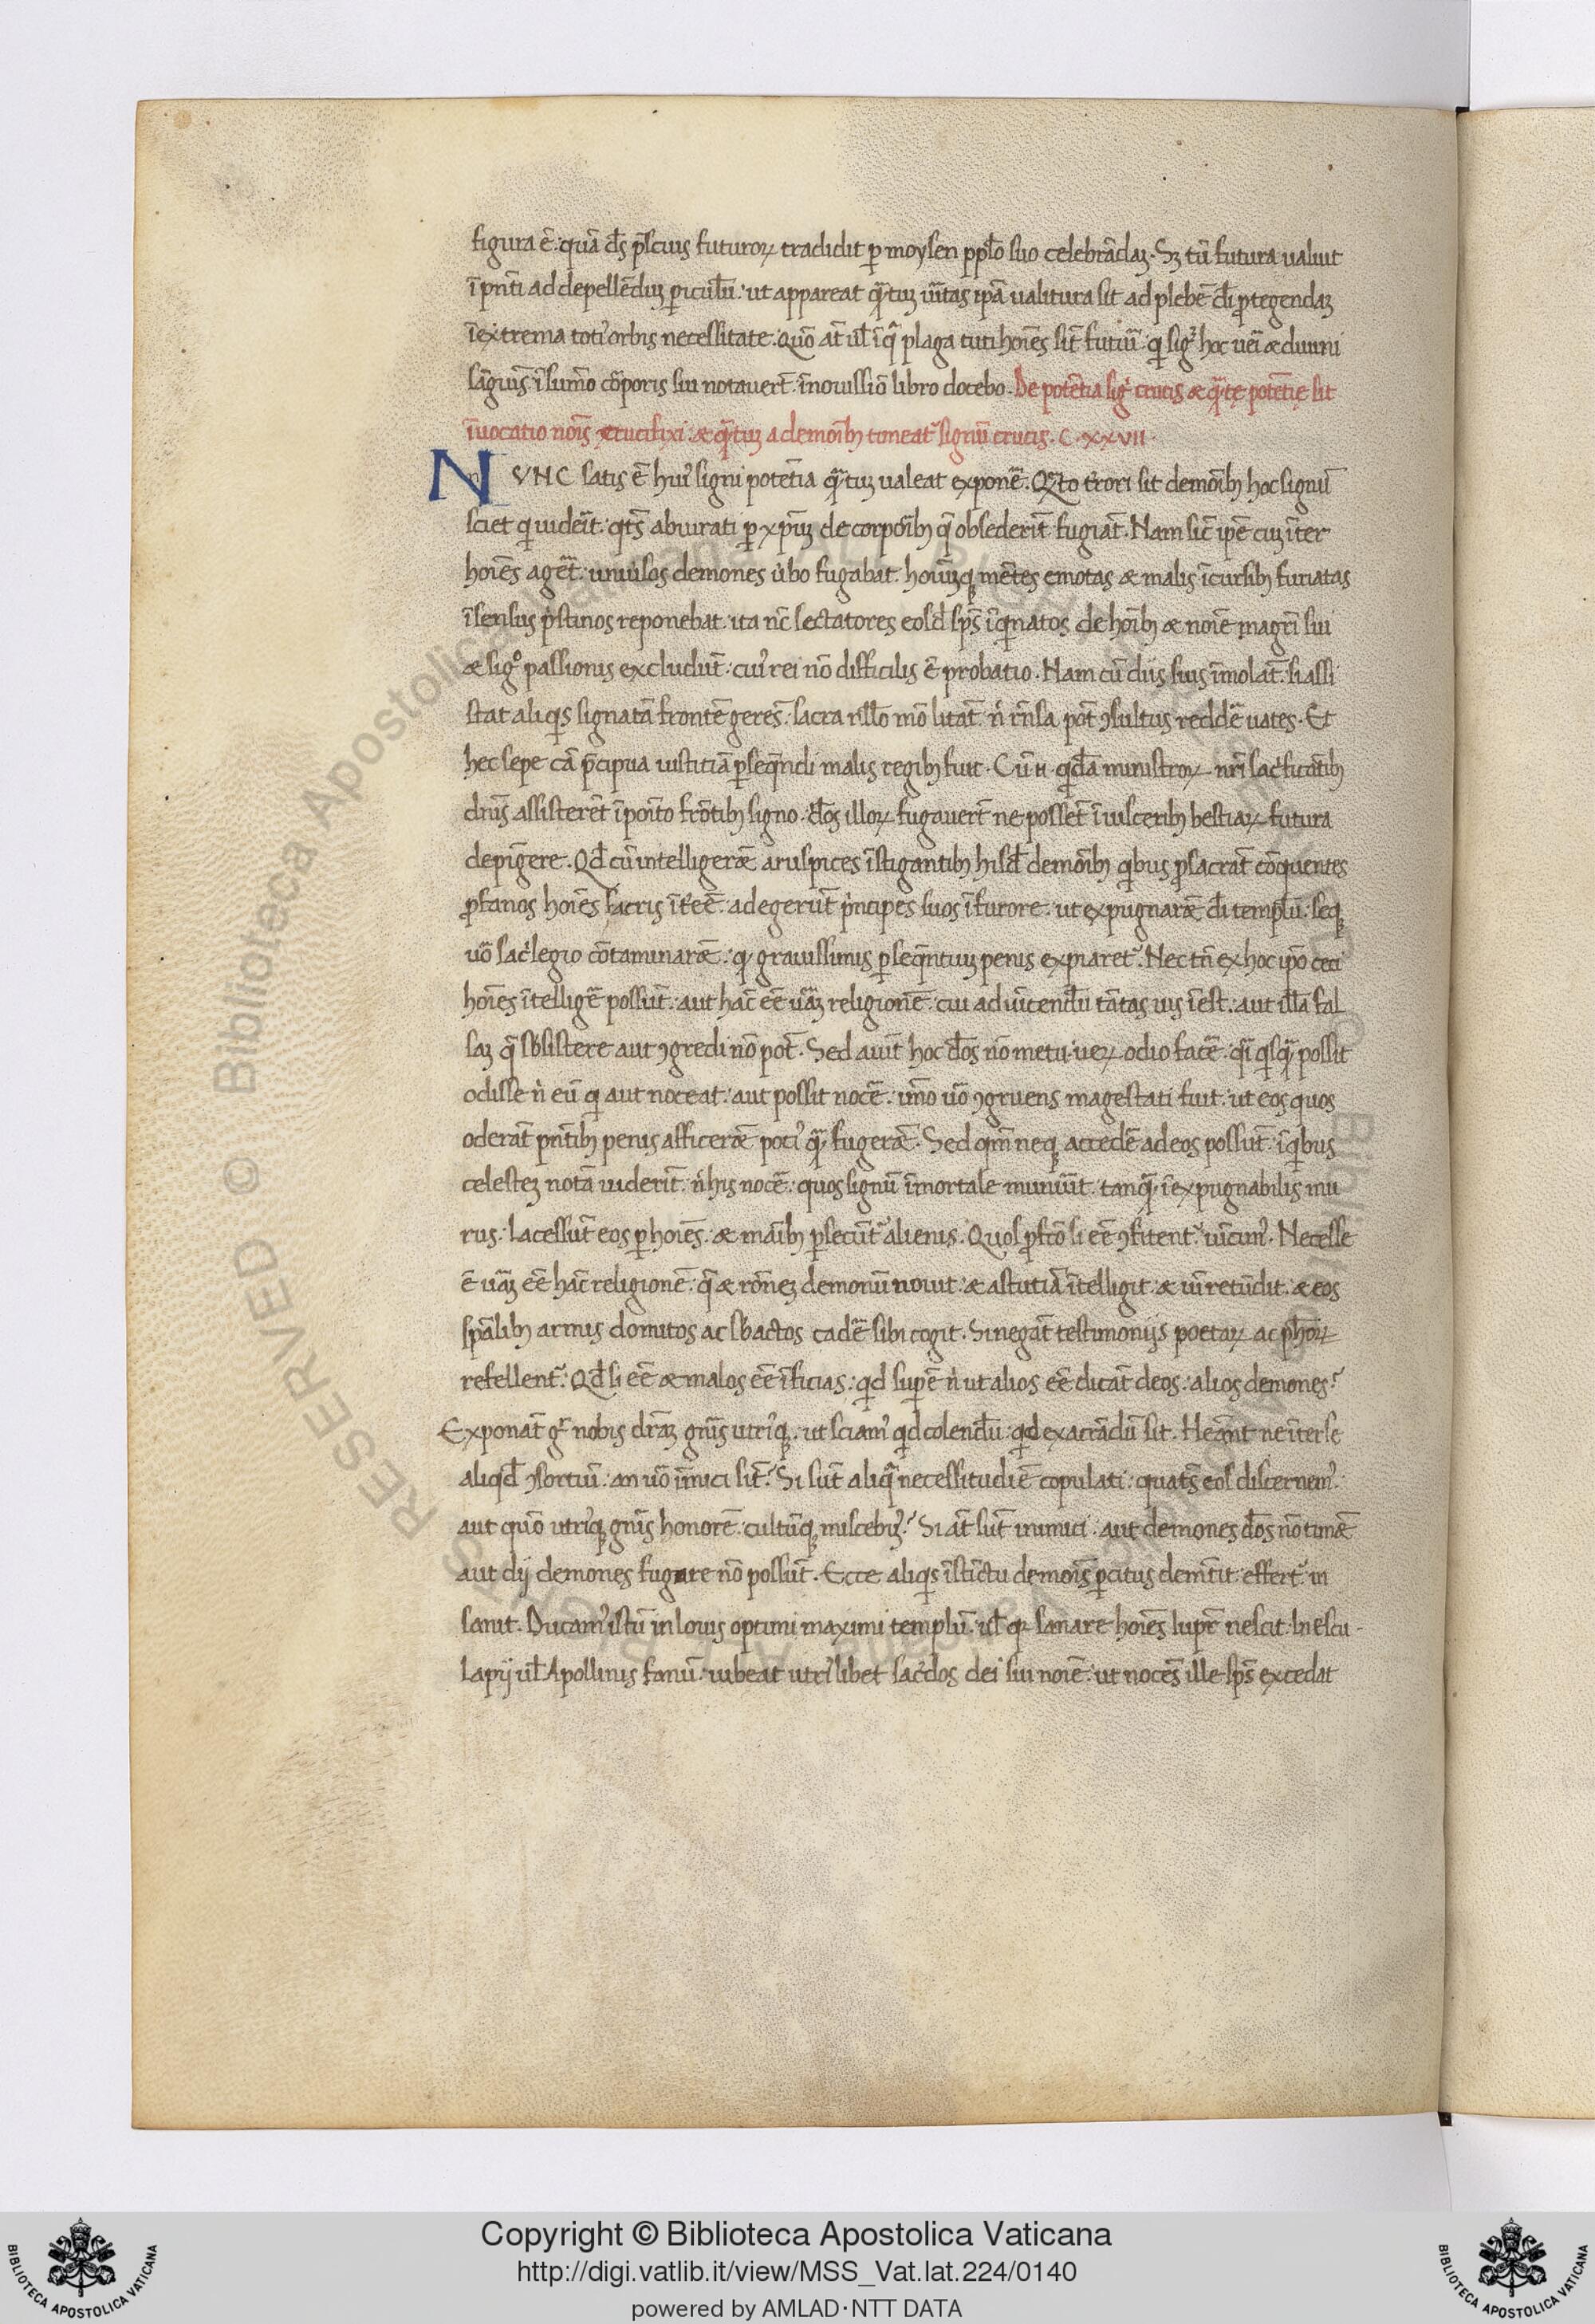 figura ē. quā d̄s p̄scius futuroꝝ tradidit ꝑ moysen pp̄lo suo celebrādaꝫ. Sꝫ tū futura ualuit
ī pn̄ti ad depellēduꝫ ꝑiculū. ut appareat q̄tuꝫ uītas ip̄a ualitura sit ad plebē d̄i ꝓtegendaꝫ
ī extrema toti᷒ orbis necessitate. Quō at̄ ul̄ ī q̄ plaga tuti hoīes sīt futuri. qi sig᷒ hoc ueri & diuini
sāguīs ī sūmo corporis sui notauerīt. ī nouissīo libro docebo. De potētia sigī crucis & q̄tę potētię sit
īuocatio noīs crucifixi. & q̄tuꝫ a demoībꝫ timeat᷒ signū crucis. C. XXVII.
NVNC satis ē hui᷒ signi potētia q̄tuꝫ ualeat exponē. Q̄to t̄rori sit demoībꝫ hoc signū
sciet qi uiderīt. qt̄s abiurati ꝑ xp̄uꝫ de corpoībꝫ q̄ obsederīt fugiāt. Nam sic̄ ip̄e cuꝫ īter
hoīes agēt. uniūsos demones ūbo fugabat. hoīuꝫqꝫ mētes emotas & malis īcursibꝫ furiatas
ī sensus p̄stinos reponebat. ita nc̄ sectatores eosd̄ sp̄s īqinatos de hoībꝫ & noīe magr̄i sui
& sig᷒o passionis excludūt. cui᷒ rei nō difficilis ē probatio. Nam cū diis suis īmolāt. si assi
stat aliqis signatā frontē gerēs. sacra nl̄lo mō litāt. n̄ rn̄sa pōt ꝯsultus reddē uates. Et
hec sepe cā p̄cipua iustitiā ꝑseqndi malis regibꝫ fuit. Cū .n. qidā ministroꝝ nr̄i sac̄ficātibꝫ
dn̄is assisterēt īpoīto frōtibꝫ signo. d̄os illoꝝ fugauerīt ne possēt ī uisceribꝫ bestiaꝝ futura
depīgere. Qd̄ cū intelligeræ aruspices īstigantibꝫ hisd̄ demoībꝫ qibus ꝓsacrāt cōquentes
ꝓfanos hoīes sacris īteē. adegerūt p̄ncipes suos ī furore. ut expugnaræ d̄i templū. seqꝫ
uō sac̄legio cōtaminaræ. qi grauissimis ꝑseqntiuꝫ penis expiaret᷒. Nec tn̄ ex hoc ip̄o ceci
hoīes ītelligē possūt. aut hāc eē uāꝫ religionē. cui ad uīcendū tātas uis īest. aut illā fal
saꝫ q̄ sb̄sistere aut ꝯgredi nō pōt. Sed aiūt hoc d̄os nō metu. ueꝝ odio facē. q̄i qisq̄ possit
odisse n̄ eū qi aut noceat. aut possit nocē. īmo uō ꝯgruens magestati fuit. ut eos quos
oderāt pn̄tibꝫ penis afficeræ poti᷒ q̄ fugeræ. Sed qm̄ neqꝫ accedē ad eos possūt. ī qibus
celesteꝫ notā uiderīt. n̄ his nocē. quos signū īmortale muniuit. tanq̄ īexpugnabilis mu
rus. lacessūt eos ꝑ hoīes. & māibꝫ ꝑsecūt᷒ alienis. Quos ꝓfco si eē ꝯfitent᷒. uicim᷒. Necesse
ē uāꝫ eē hāc religionē. q̄ & rōneꝫ demonū nouit. & astutiā ītelligit. & uim retūdit. & eos
sp̄alibꝫ armis domitos ac sb̄actos cadē sibi cogit. Si negāt testimonijs poetaꝝ ac ph̄oꝝ
refellent᷒. Qd̄ si eē & malos eē īficias. qid supē n̄ ut alios eē dicāt deos. alios demones?
Exponāt g̅ nobis dr̄aꝫ gn̄is utri᷒qꝫ. ut sciam᷒ qid colendū. qid exacrādū sit. Heāntne īter se
aliqid ꝯsortiū. an uō īimici sīt? Si sūt aliq̄ necessitudīe copulati. quat̄s eos discernem᷒.
aut quō utri᷒qꝫ gn̄is honorē. cultūqꝫ miscebim᷒? Si at̄ sūt inimici. aut demones d̄os nō timēt
aut dij demones fugare nō possūt. Ecce aliqis īstīctu demoīs ꝑcitus demētit. effert᷒. in
sanit. Ducam᷒ istū in Iouis optimi maximi templū. ul̄ qꝛ sanare hoīes Iupr̄ nescit. In escu-
lapij ul̄ Apollinis fanū. iubeat utri᷒ libet sac̄dos dei sui noīe. ut nocēs ille sp̄s excedat
Copyright © Biblioteca Apostolica Vaticana
http://digi.vatlib.it/view/MSS_Vat.lat.224/0140
powered by AMLAD·NTT DATA